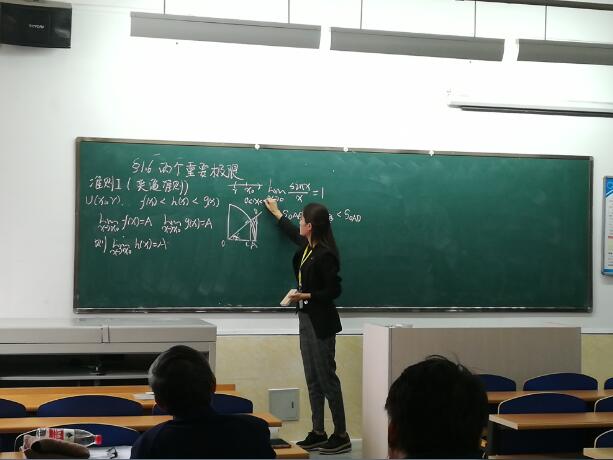 §1.6 两个重要极限
准则I (夹逼准则)
U(x₀,r). f(x) < h(x) < g(x)
lim x→x₀ f(x)=A lim x→x₀ g(x)=A
则 lim x→x₀ h(x)=A
lim x→0 sinx/x = 1
0<x<
< S